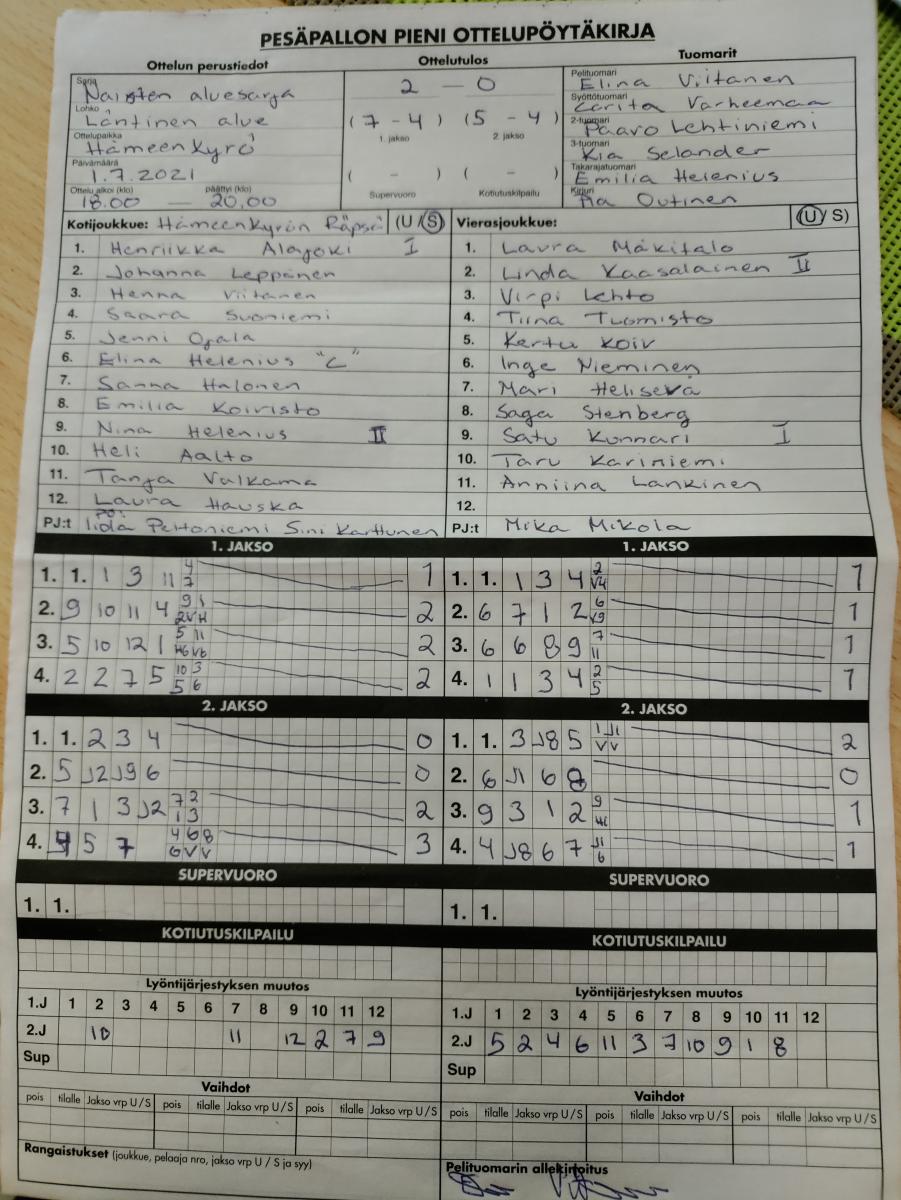 PESÄPALLON PIENI OTTELUPÖYTÄKIRJA
Ottelun perustiedot Ottelutulos Tuomarit
Sarja Naisten aluesarja
Lohko Läntinen alue
Ottelupaikka Hämeenkyrö
Päivämäärä 1.7.2021
Ottelu alkoi (klo) 18.00 — päättyi (klo) 20.00
2 — 0
(7 - 4) (5 - 4)
1. jakso 2. jakso
( - ) ( - )
Supervuoro Kotiutuskilpailu
Pelituomari Elina Viitanen
Syöttötuomari Carita Varheemaa
2-tuomari Paavo Lehtiniemi
3-tuomari Kia Selander
Takarajatuomari Emilia Helenius
Kirjuri Pia Outinen
Kotijoukkue: Hämeenkyrön Räpsä (U / S)
1. Henriikka Alajoki I
2. Johanna Leppänen
3. Henna Viitanen
4. Saara Suoniemi
5. Jenni Ojala
6. Elina Helenius "C"
7. Sanna Halonen
8. Emilia Koivisto
9. Nina Helenius II
10. Heli Aalto
11. Tanja Valkama
12. Laura Hauska
PJ:t Iida Peltoniemi Sini Karttunen
Vierasjoukkue: (U / S)
1. Laura Mäkitalo
2. Linda Kaasalainen II
3. Virpi Lehto
4. Tiina Tuomisto
5. Kertu Koiv
6. Inge Nieminen
7. Mari Helisevä
8. Saga Stenberg
9. Satu Kunnari I
10. Taru Kariniemi
11. Anniina Lankinen
12.
PJ:t Mika Mikola
1. JAKSO
1. 1. 1 3 11 4 7 1
2. 9 10 11 4 9 1 2 V H 2
3. 5 10 12 1 5 11 H6 V6 2
4. 2 2 7 5 10 3 5 6 2
1. JAKSO
1. 1. 1 3 4 2 V4 1
2. 6 7 1 2 6 V9 1
3. 6 6 8 9 7 11 1
4. 1 1 3 4 2 5 1
2. JAKSO
1. 1. 2 3 4 0
2. 5 J2 J9 6 0
3. 7 1 3 J2 7 2 1 3 2
4. 4 5 7 4 6 8 6 V V 3
2. JAKSO
1. 1. 3 J8 5 1 J1 V V 2
2. 6 J1 6 8 0
3. 9 3 1 2 9 1
4. 4 J8 6 7 J1 6 1
SUPERVUORO
1. 1.
SUPERVUORO
1. 1.
KOTIUTUSKILPAILU
KOTIUTUSKILPAILU
Lyöntijärjestyksen muutos
1.J 1 2 3 4 5 6 7 8 9 10 11 12
2.J 10 11 12 2 7 9
Sup
Lyöntijärjestyksen muutos
1.J 1 2 3 4 5 6 7 8 9 10 11 12
2.J 5 2 4 6 11 3 7 10 9 1 8
Sup
Vaihdot
pois tilalle Jakso vrp U / S pois tilalle Jakso vrp U / S pois tilalle Jakso vrp U / S
Vaihdot
pois tilalle Jakso vrp U / S pois tilalle Jakso vrp U / S pois tilalle Jakso vrp U / S
Rangaistukset (joukkue, pelaaja nro, jakso vrp U / S ja syy)
Pelituomarin allekirjoitus